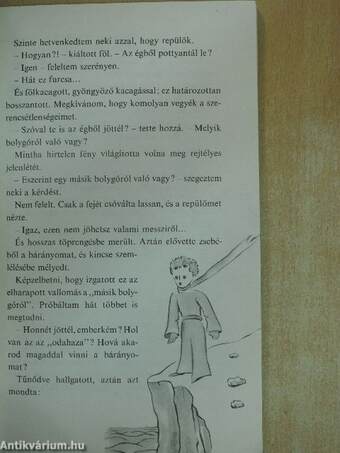 Szinte hetvenkedtem neki azzal, hogy repülök.
– Hogyan?! – kiáltott föl. – Az égből pottyantál le?
– Igen – feleltem szerényen.
– Hát ez furcsa...
És fölkacagott, gyöngyöző kacagással; ez határozottan
bosszantott. Megkívánom, hogy komolyan vegyék a sze-
rencsétlenségeimet.
– Szóval te is az égből jöttél? – tette hozzá. – Melyik
bolygóról való vagy?
Mintha hirtelen fény világította volna meg rejtélyes
jelenlétét.
– Eszerint egy másik bolygóról való vagy? – szegeztem
neki a kérdést.
Nem felelt. Csak a fejét csóválta lassan, és a repülőmet
nézte.
– Igaz, ezen nem jöhetsz valami messziről...
És hosszas töprengésbe merült. Aztán elővette zsebé-
ből a bárányomat, és kincse szem-
lélésébe mélyedt.
Képzelhetni, hogy izgatott ez az
elharapott vallomás a „másik boly-
góról”. Próbáltam hát többet is
megtudni.
– Honnét jöttél, emberkém? Hol
van az az „odahaza”? Hová aka-
rod magaddal vinni a bárányo-
mat?
Tűnődve hallgatott, aztán azt
mondta:
Antikvárium.hu